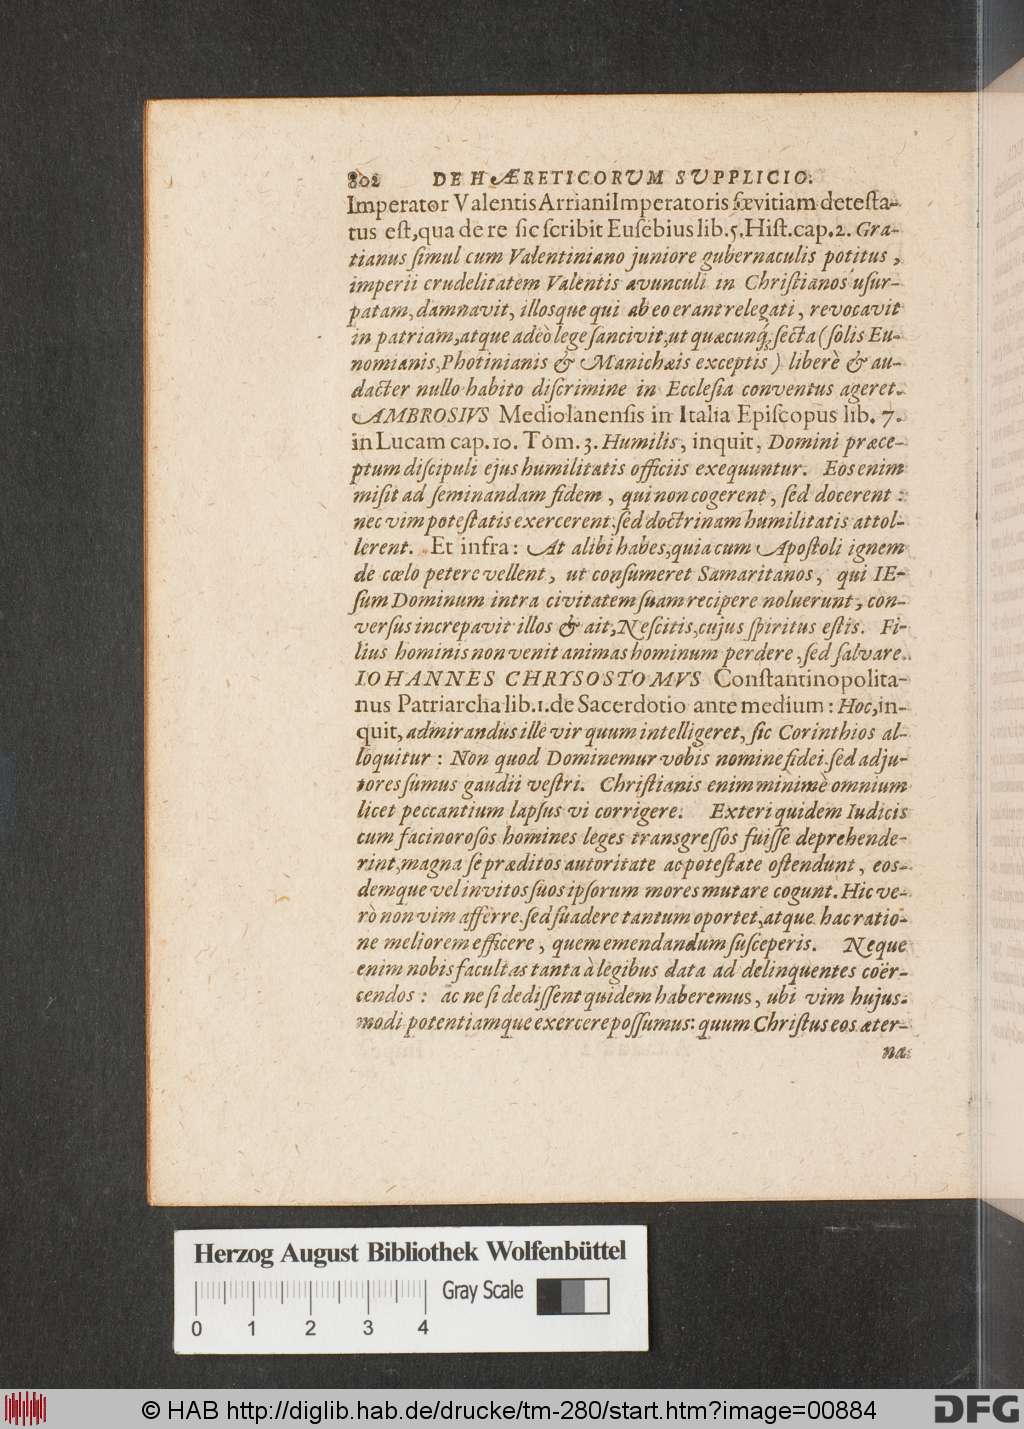 802 DE HÆRETICORUM SUPPLICIO.
Imperator Valentis Arriani Imperatoris sævitiam detesta-
tus est, qua de re sic scribit Eusebius lib. 5. Hist. cap. 2. Gra-
tianus simul cum Valentiniano juniore gubernaculis potitus,
imperii crudelitatem Valentis avunculi in Christianos usur-
patam, damnavit, illosque qui ab eo erant relegati, revocavit
in patriam, atque adeò lege sancivit, ut quæcunq; secta (solis Eu-
nomianis, Photinianis & Manichæis exceptis) liberè & au-
dacter nullo habito discrimine in Ecclesia conventus ageret.
AMBROSIVS Mediolanensis in Italia Episcopus lib. 7.
in Lucam cap. 10. Tom. 3. Humilis, inquit, Domini præce-
ptum discipuli ejus humilitatis officiis exequuntur. Eos enim
misit ad seminandam fidem, qui non cogerent, sed docerent:
nec vim potestatis exercerent, sed doctrinam humilitatis attol-
lerent. Et infra: At alibi habes, quia cum Apostoli ignem
de cœlo petere vellent, ut consumeret Samaritanos, qui IE-
sum Dominum intra civitatem suam recipere noluerunt, con-
versus increpavit illos & ait, Nescitis, cujus spiritus estis. Fi-
lius hominis non venit animas hominum perdere, sed salvare.
IOHANNES CHRYSOSTOMVS Constantinopolita-
nus Patriarcha lib. 1. de Sacerdotio ante medium: Hoc, in-
quit, admirandus ille vir quum intelligeret, sic Corinthios al-
loquitur: Non quod Dominemur vobis nomine fidei, sed adju-
tores sumus gaudii vestri. Christianis enim minimè omnium
licet peccantium lapsus vi corrigere. Exteri quidem Iudicis
cum facinorosos homines leges transgressos fuisse deprehende-
rint, magna se præditos autoritate ac potestate ostendunt, eos-
demque vel invitos suos ipsorum mores mutare cogunt. Hic ve-
rò non vim afferre, sed suadere tantum oportet, atque hac ratio-
ne meliorem efficere, quem emendandum susceperis. Neque
enim nobis facultas tanta à legibus data ad delinquentes coër-
cendos: ac ne si dedissent quidem haberemus, ubi vim hujus-
modi potentiamque exercere possumus: quum Christus eos æter-
na
Herzog August Bibliothek Wolfenbüttel
Gray Scale
0 1 2 3 4
© HAB http://diglib.hab.de/drucke/tm-280/start.htm?image=00884
DFG